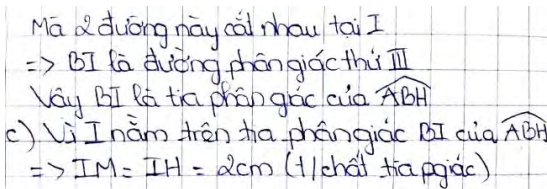 Mà 2 đường này cắt nhau tại I
=> BI là đường phân giác thứ III
Vậy BI là tia phân giác của ABH
c) Vì I nằm trên tia phân giác BI của ABH
=> IM = IH = 2cm (t/chất tia pgiác)